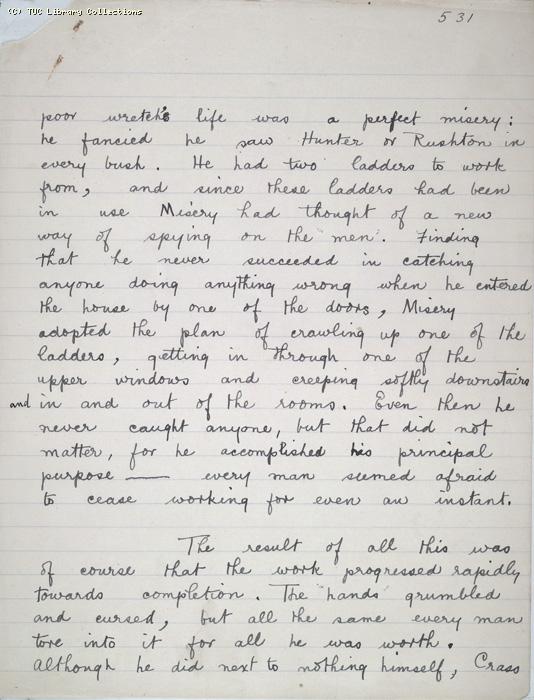 (C) TUC Library Collections
531
poor wretch's life was a perfect misery:
he fancied he saw Hunter or Rushton in
every bush. He had two ladders to work
from, and since these ladders had been
in use Misery had thought of a new
way of spying on the men. Finding
that he never succeeded in catching
anyone doing anything wrong when he entered
the house by one of the doors, Misery
adopted the plan of crawling up one of the
ladders, getting in through one of the
upper windows and creeping softly downstairs
and in and out of the rooms. Even then he
never caught anyone, but that did not
matter, for he accomplished his principal
purpose —— every man seemed afraid
to cease working for even an instant.
The result of all this was
of course that the work progressed rapidly
towards completion. The hands grumbled
and cursed, but all the same every man
tore into it for all he was worth.
Although he did next to nothing himself, Crass